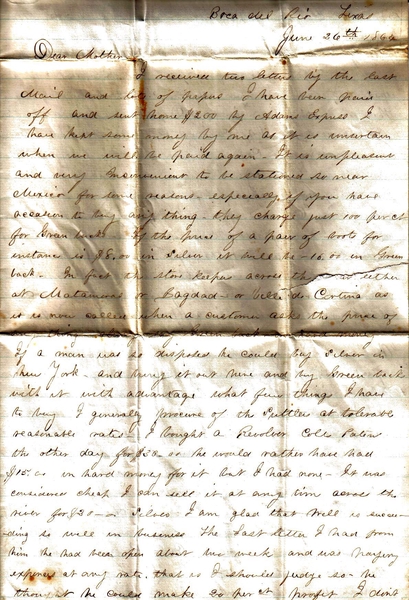 Boca del Rio Texas
June 26th 186
Dear Mother
I received two letters by the last
Mail and lots of papers I have been paid
off and sent home $200 by Adams Express I
have kept some money by me as it is uncertain
when we will be paid again. It is unpleasant
and very inconvenient to be stationed so near
Mexico for some reasons, especially if you have
occasion to buy any thing. they charge just 100 per ct
for Green backs. If the price of a pair of boots for
instance is $8.00 in Silver it will be 16.00 in Green
back. In fact the store keepers across the either
at Matamoras or Bagdad or Villa de Cortina as
it is now called when a customer ask the price of
If a man was so disposed he could buy Silver in
New York and bring it out here and buy Green back
with it with advantage what few things I have
to buy I generally procure of the Sutlers at tolerable
reasonable rates. I bought a Revolver Colts Patent
the other day for $30.00 he would rather have had
$15.00 in hard money for it but I had none. It was
considered cheap I can sell it at any time across the
river for $30 in Silver. I am glad that Will is succee-
ding so well in business. The last letter I had from
him he had been open about two week and was paying
expenses at any rate. that is I should judge so he
thought he could make 20 per ct profit. I dont